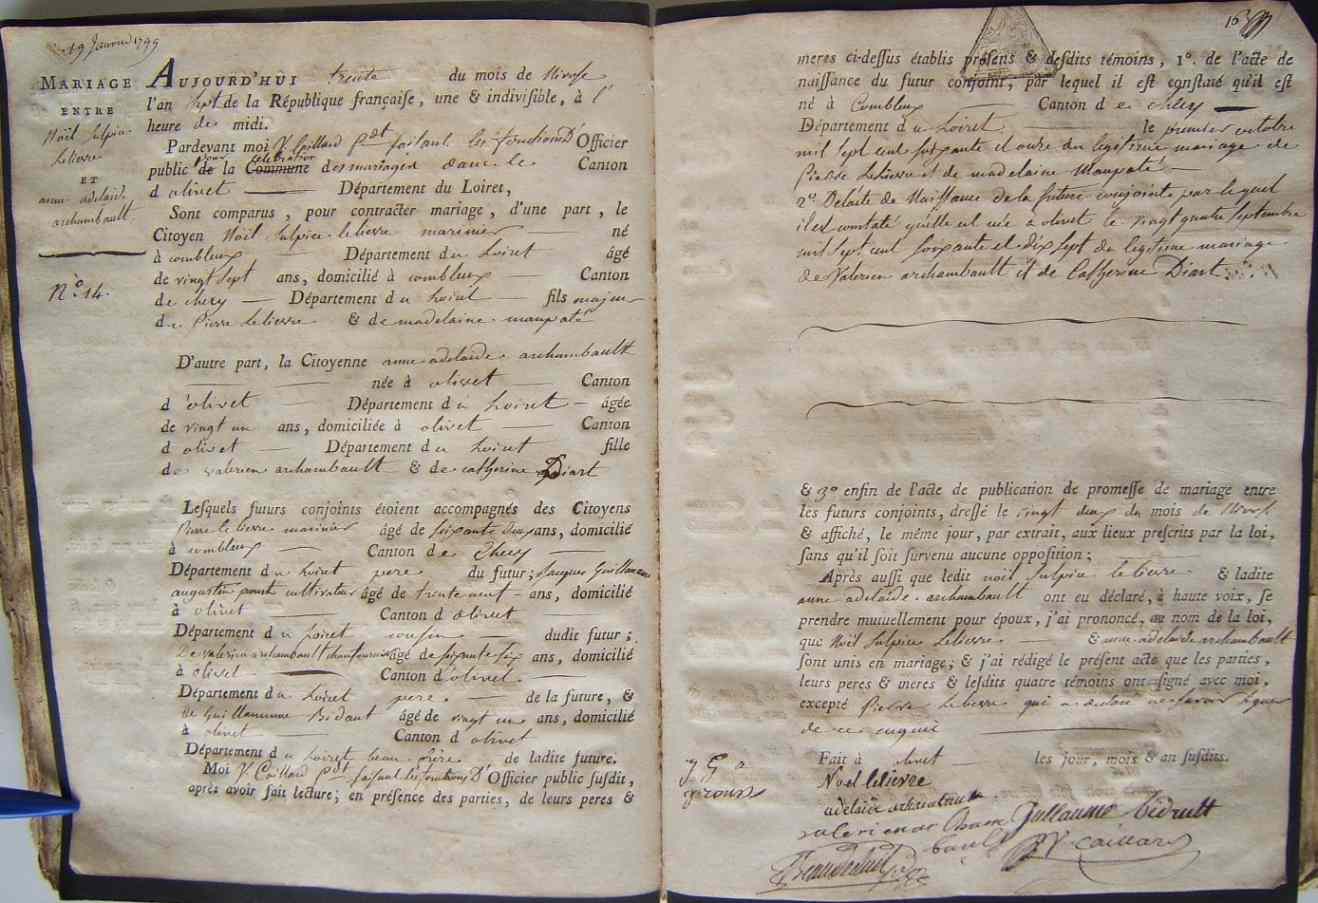 19 Janvier 1799
MARIAGE
ENTRE
Noël Sulpice
Lelievre
ET
anne adelaide
archambault
N.° 14.
AUJOURD'HUI trente du mois de Nivose
l'an Sept de la République françaiſe, une & indiviſible, à l'
heure de midi.
Pardevant moi V. Caillard pdt faiſant les fonctions D' Officier
public pour de la celebration Commune des mariages dans le Canton
d olivet Département du Loiret,
Sont comparus, pour contracter mariage, d'une part, le
Citoyen Noël Sulpice lelievre marinier né
à combleux Département du Loiret âgé
de vingt Sept ans, domicilié à combleux Canton
de checy Département du Loiret fils majeur
de Pierre lelievre & de madelaine maupaté
D'autre part, la Citoyenne anne adelaide archambault
née à olivet Canton
d'olivet Département du Loiret âgée
de vingt un ans, domiciliée à olivet Canton
d olivet Département du Loiret fille
de valerien archambault & de catherine Diart
Leſquels futurs conjoints étoient accompagnés des Citoyens
Pierre lelievre marinier âgé de ſoixante deux ans, domicilié
à combleux Canton de Checy
Département du Loiret pere du futur; Jacques Guillaume
augustin cultivateur âgé de trente neuf ans, domicilié
à olivet Canton d olivet
Département du Loiret cousin dudit futur;
De valerien archambault chaufournier âgé de ſoixante ſix ans, domicilié
à olivet Canton d'olivet
Département du Loiret pere de la future, &
de Guillaumme Bidault âgé de vingt un ans, domicilié
à olivet Canton d olivet
Département du Loiret beau frère de ladite future.
Moi V. Caillard pdt faiſant les fonctions D'Officier public ſuſdit,
après avoir fait lecture; en préſence des parties, de leurs peres &
meres ci-deſſus établis préſens & deſdits témoins, 1°. de l'acte de
naiſſance du futur conjoint, par lequel il eſt conſtaté qu'il eſt
né à Combleux Canton de checy
Département du Loiret le premier octobre
mil ſept cent ſoixante et onze du légitime mariage de
Pierre Lelievre et de madelaine Maupaté
2° De l'acte de Naissance de la future conjointe par lequel
il est constaté qu'elle est née a olivet le vingt quatre Septembre
mil Sept cent Soixante et dix Sept du legitime mariage
de Valerien archambault et de Catherine Diart
& 3° enfin de l'acte de publication de promeſſe de mariage entre
les futurs conjoints, dreſſé le vingt deux du mois de Nivose
& affiché, le même jour, par extrait, aux lieux preſcrits par la loi,
ſans qu'il ſoit ſurvenu aucune oppoſition;
Après auſſi que ledit noël Sulpice lelievre & ladite
anne adelaide archambault ont eu déclaré, à haute voix, ſe
prendre mutuellement pour époux, j'ai prononcé, au nom de la loi,
que Noël Sulpice Lelievre & anne adelaide archambault
ſont unis en mariage; & j'ai rédigé le préſent acte que les parties,
leurs peres & meres & leſdits quatre témoins ont ſigné avec moi,
excepté Pierre lelievre qui a déclaré ne ſavoir ſigner
de ce enquis
Fait à olivet les jour, mois & an ſuſdits.
Noel lelievre
adelaide archambault
Guillaume bidault
V. Caillard